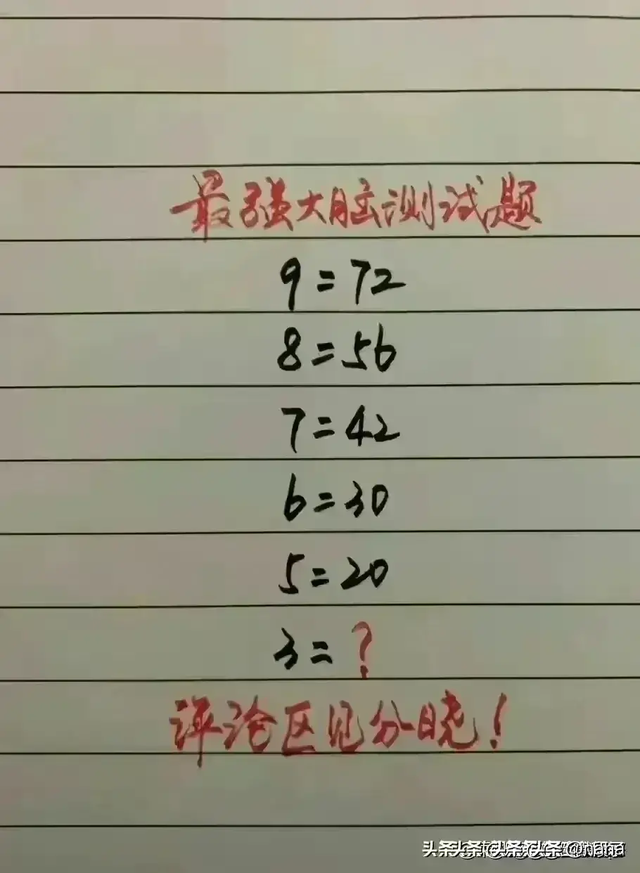 最强大脑测试题
9=72
8=56
7=42
6=30
5=20
3=?
评论区见分晓!